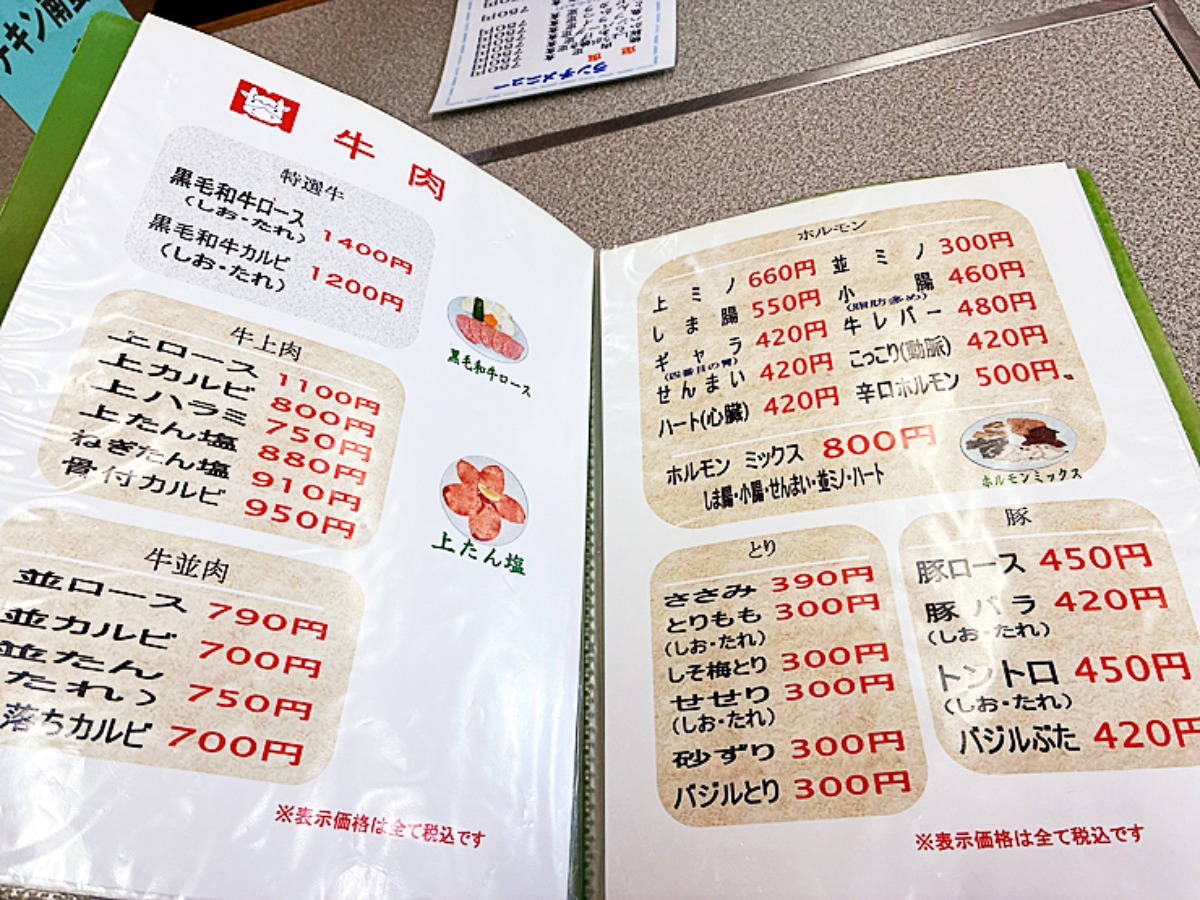 牛肉
特選牛
黒毛和牛ロース 1400円
(しお・たれ)
黒毛和牛カルビ 1200円
(しお・たれ)
黒毛和牛ロース
牛上肉
上ロース 1100円
上カルビ 800円
上ハラミ 750円
上たん塩 880円
ねぎたん塩 910円
骨付カルビ 950円
上たん塩
牛並肉
並ロース 790円
並カルビ 700円
並たん 750円
たれ)
落ちカルビ 700円
※表示価格は全て税込です
ホルモン
上ミノ 660円 並ミノ 300円
しま腸 550円 小腸 460円
(脂肪多め)
ギャラ 420円 牛レバー 480円
(四番目の胃)
せんまい 420円 こっこり(動脈) 420円
ハート(心臓) 420円 辛口ホルモン 500円
ホルモン ミックス 800円
しま腸・小腸・せんまい・並ミノ・ハート
ホルモンミックス
とり
ささみ 390円
とりもも 300円
(しお・たれ)
しそ梅とり 300円
せせり 300円
(しお・たれ)
砂ずり 300円
バジルとり 300円
豚
豚ロース 450円
豚バラ 420円
(しお・たれ)
トントロ 450円
(しお・たれ)
バジルぶた 420円
※表示価格は全て税込です
ランチメニュー